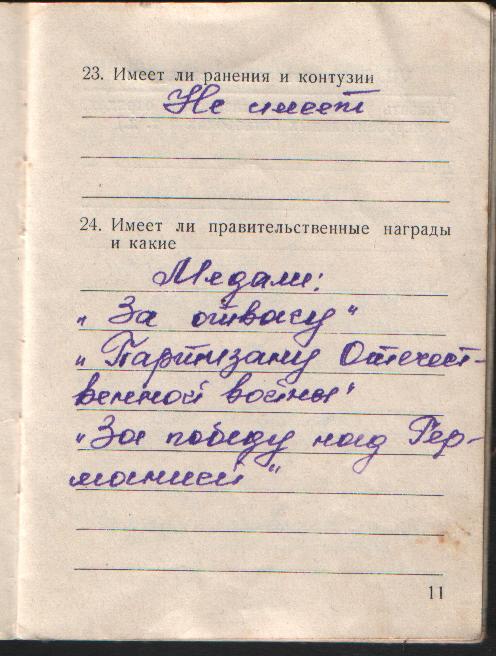 23. Имеет ли ранения и контузии
Не имеет
24. Имеет ли правительственные награды
и какие
Медали:
„За отвагу“
„Партизану Отечест-
венной войны"
„За победу над Гер-
манией“
11